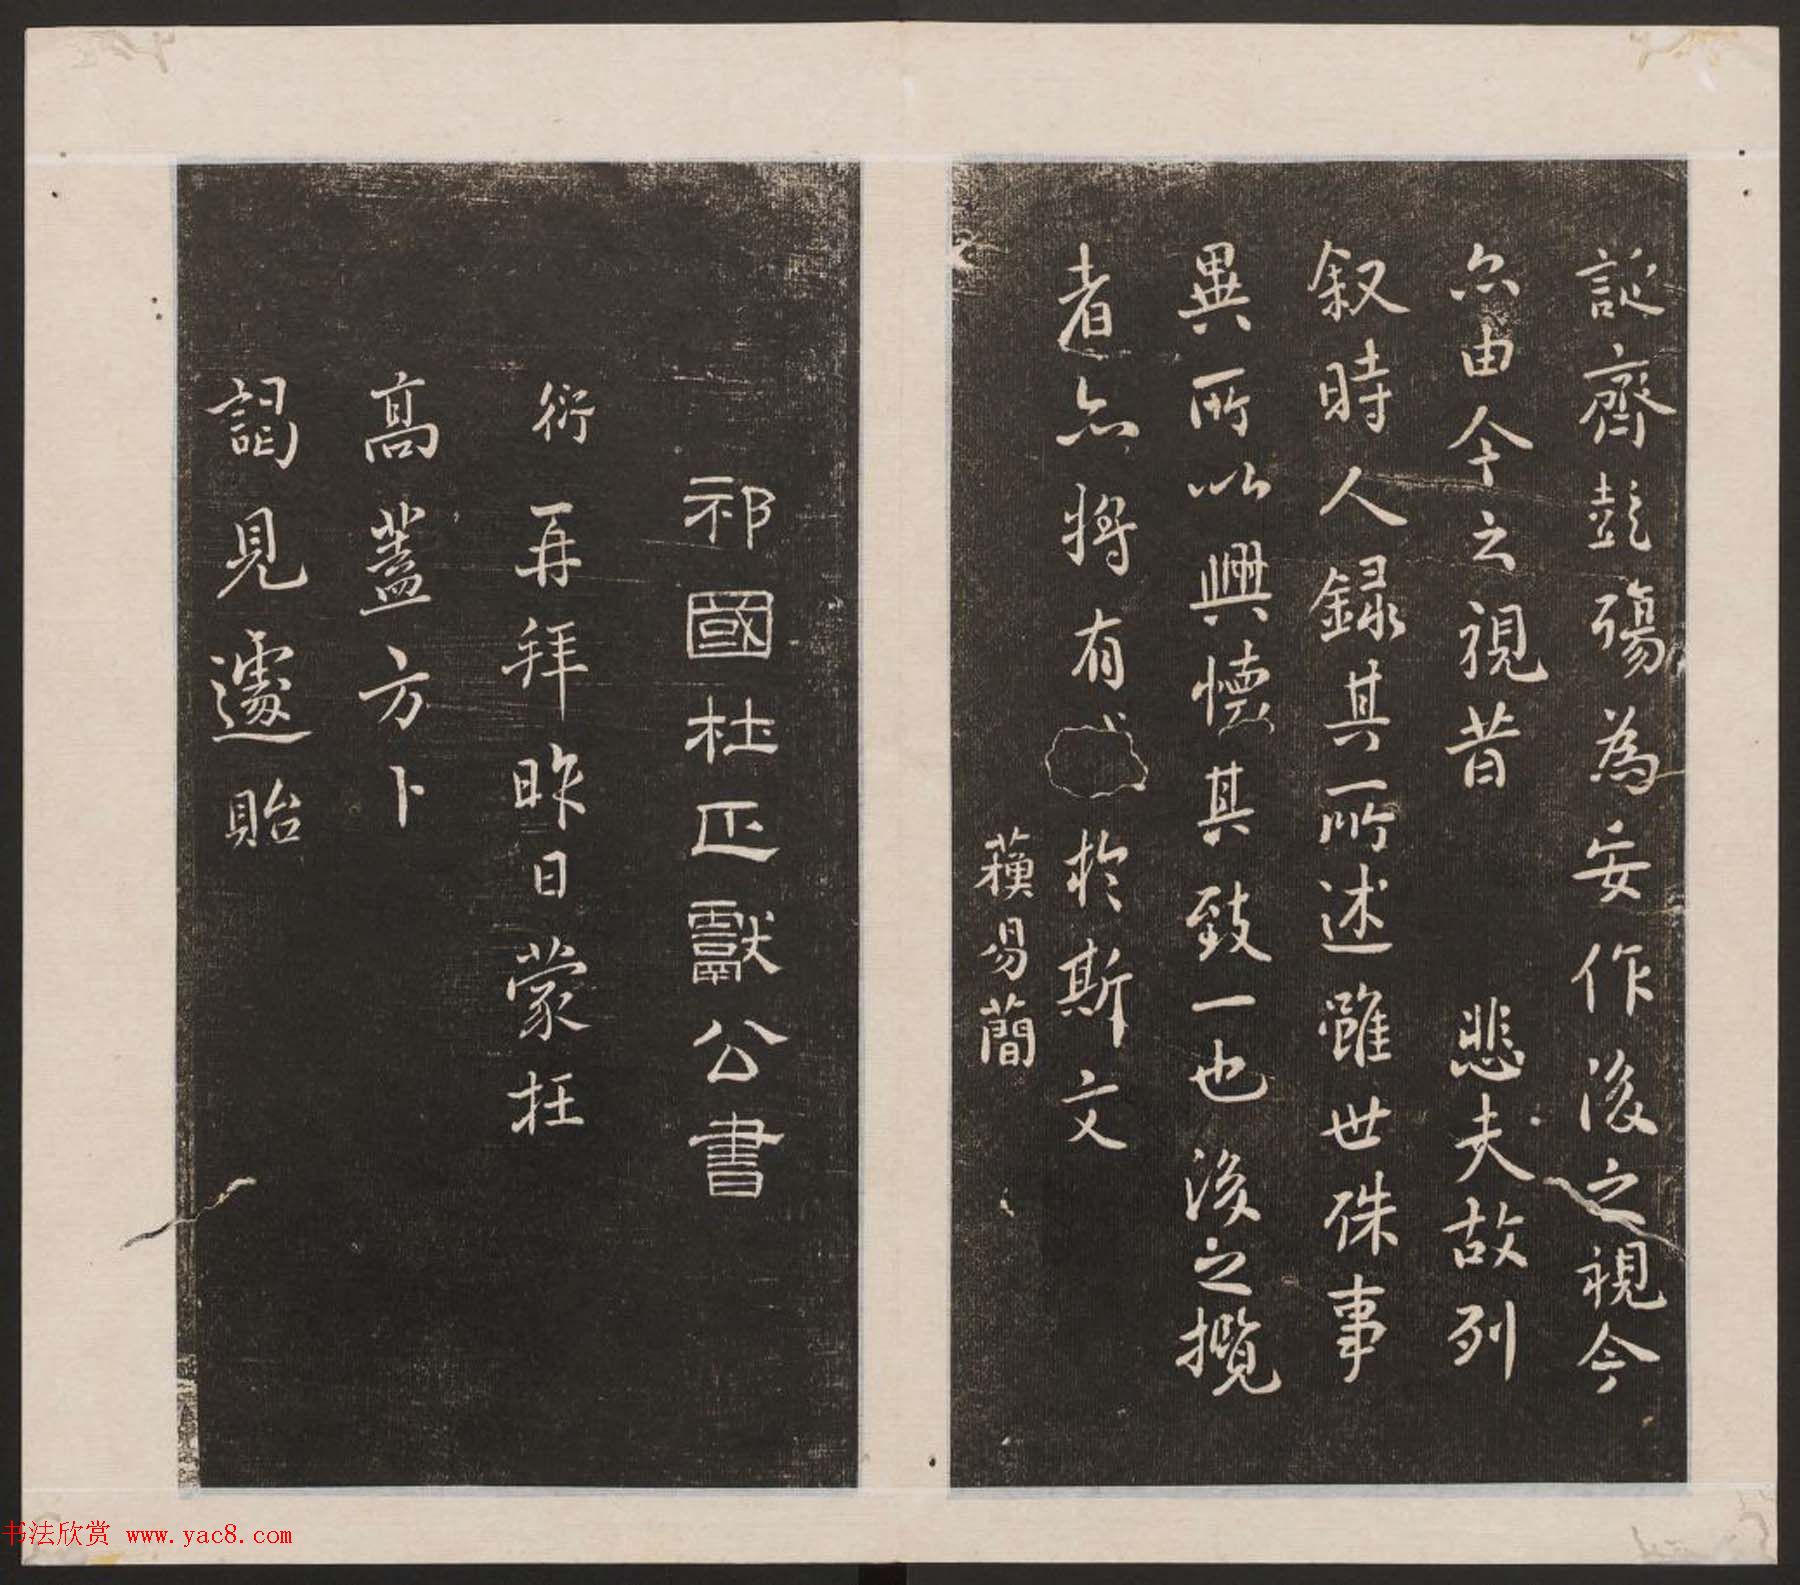 誕齊彭殤為妄作後之視今
亦由今之視昔 悲夫故列
叙時人録其所述雖世殊事
異所以興懷其致一也後之攬
者亦將有 於斯文
蘇易簡
祁國杜正獻公書
衍再拜昨日蒙枉
高蓋方卜
謁見遽貽
书法欣赏 www.yac8.com